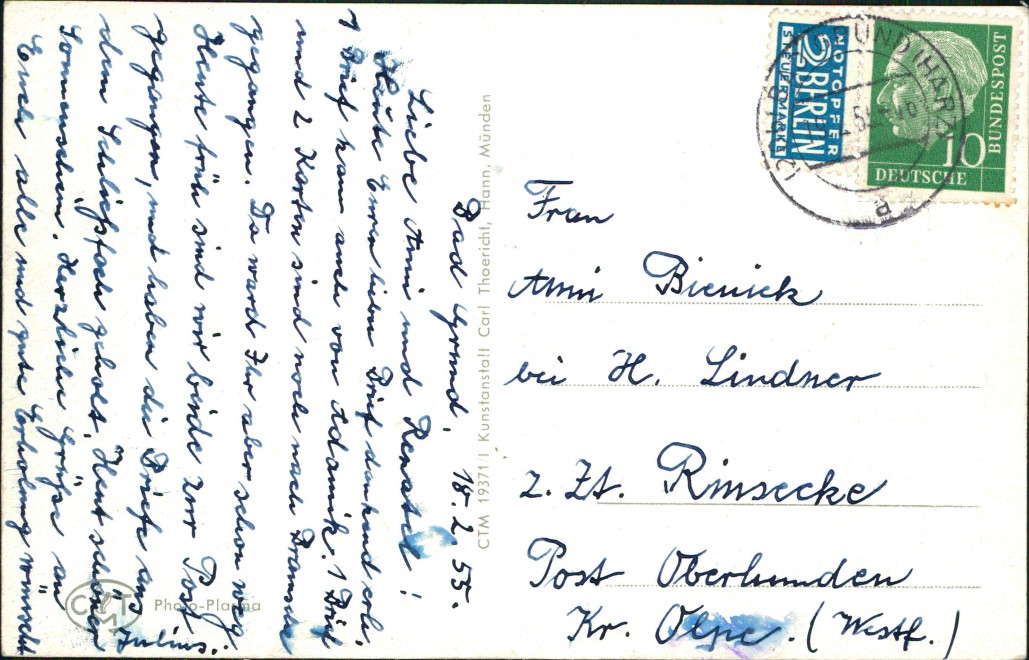 Bad Grund, 18.2.55.
Liebe Anni und Renate!
Heute Euren lieben Brief dankend erh.
1 Brief kam auch von Adamik. 1 Brief
und 2 Karten sind noch nach Bramsche
gegangen. Da ward Ihr aber schon weg.
Heute früh sind wir beide zur Post
gegangen, und haben die Briefe aus
dem Schließfach geholt. Heut schöner
Sonnenschein. Herzliche Grüße an
Euch alle und gute Erholung wünscht
Julius.
CTM 19371 I Kunstanstalt Carl Thoericht, Hann. Münden
Photo-Plasma
NOTOPFER
2 BERLIN
STEUERMARKE
10
DEUTSCHE
BUNDESPOST
GRUND (HARZ)
a
Frau
Anni Bienick
bei H. Lindner
z. Zt. Rinsecke
Post Oberhunden
Kr. Olpe. (Westf.)